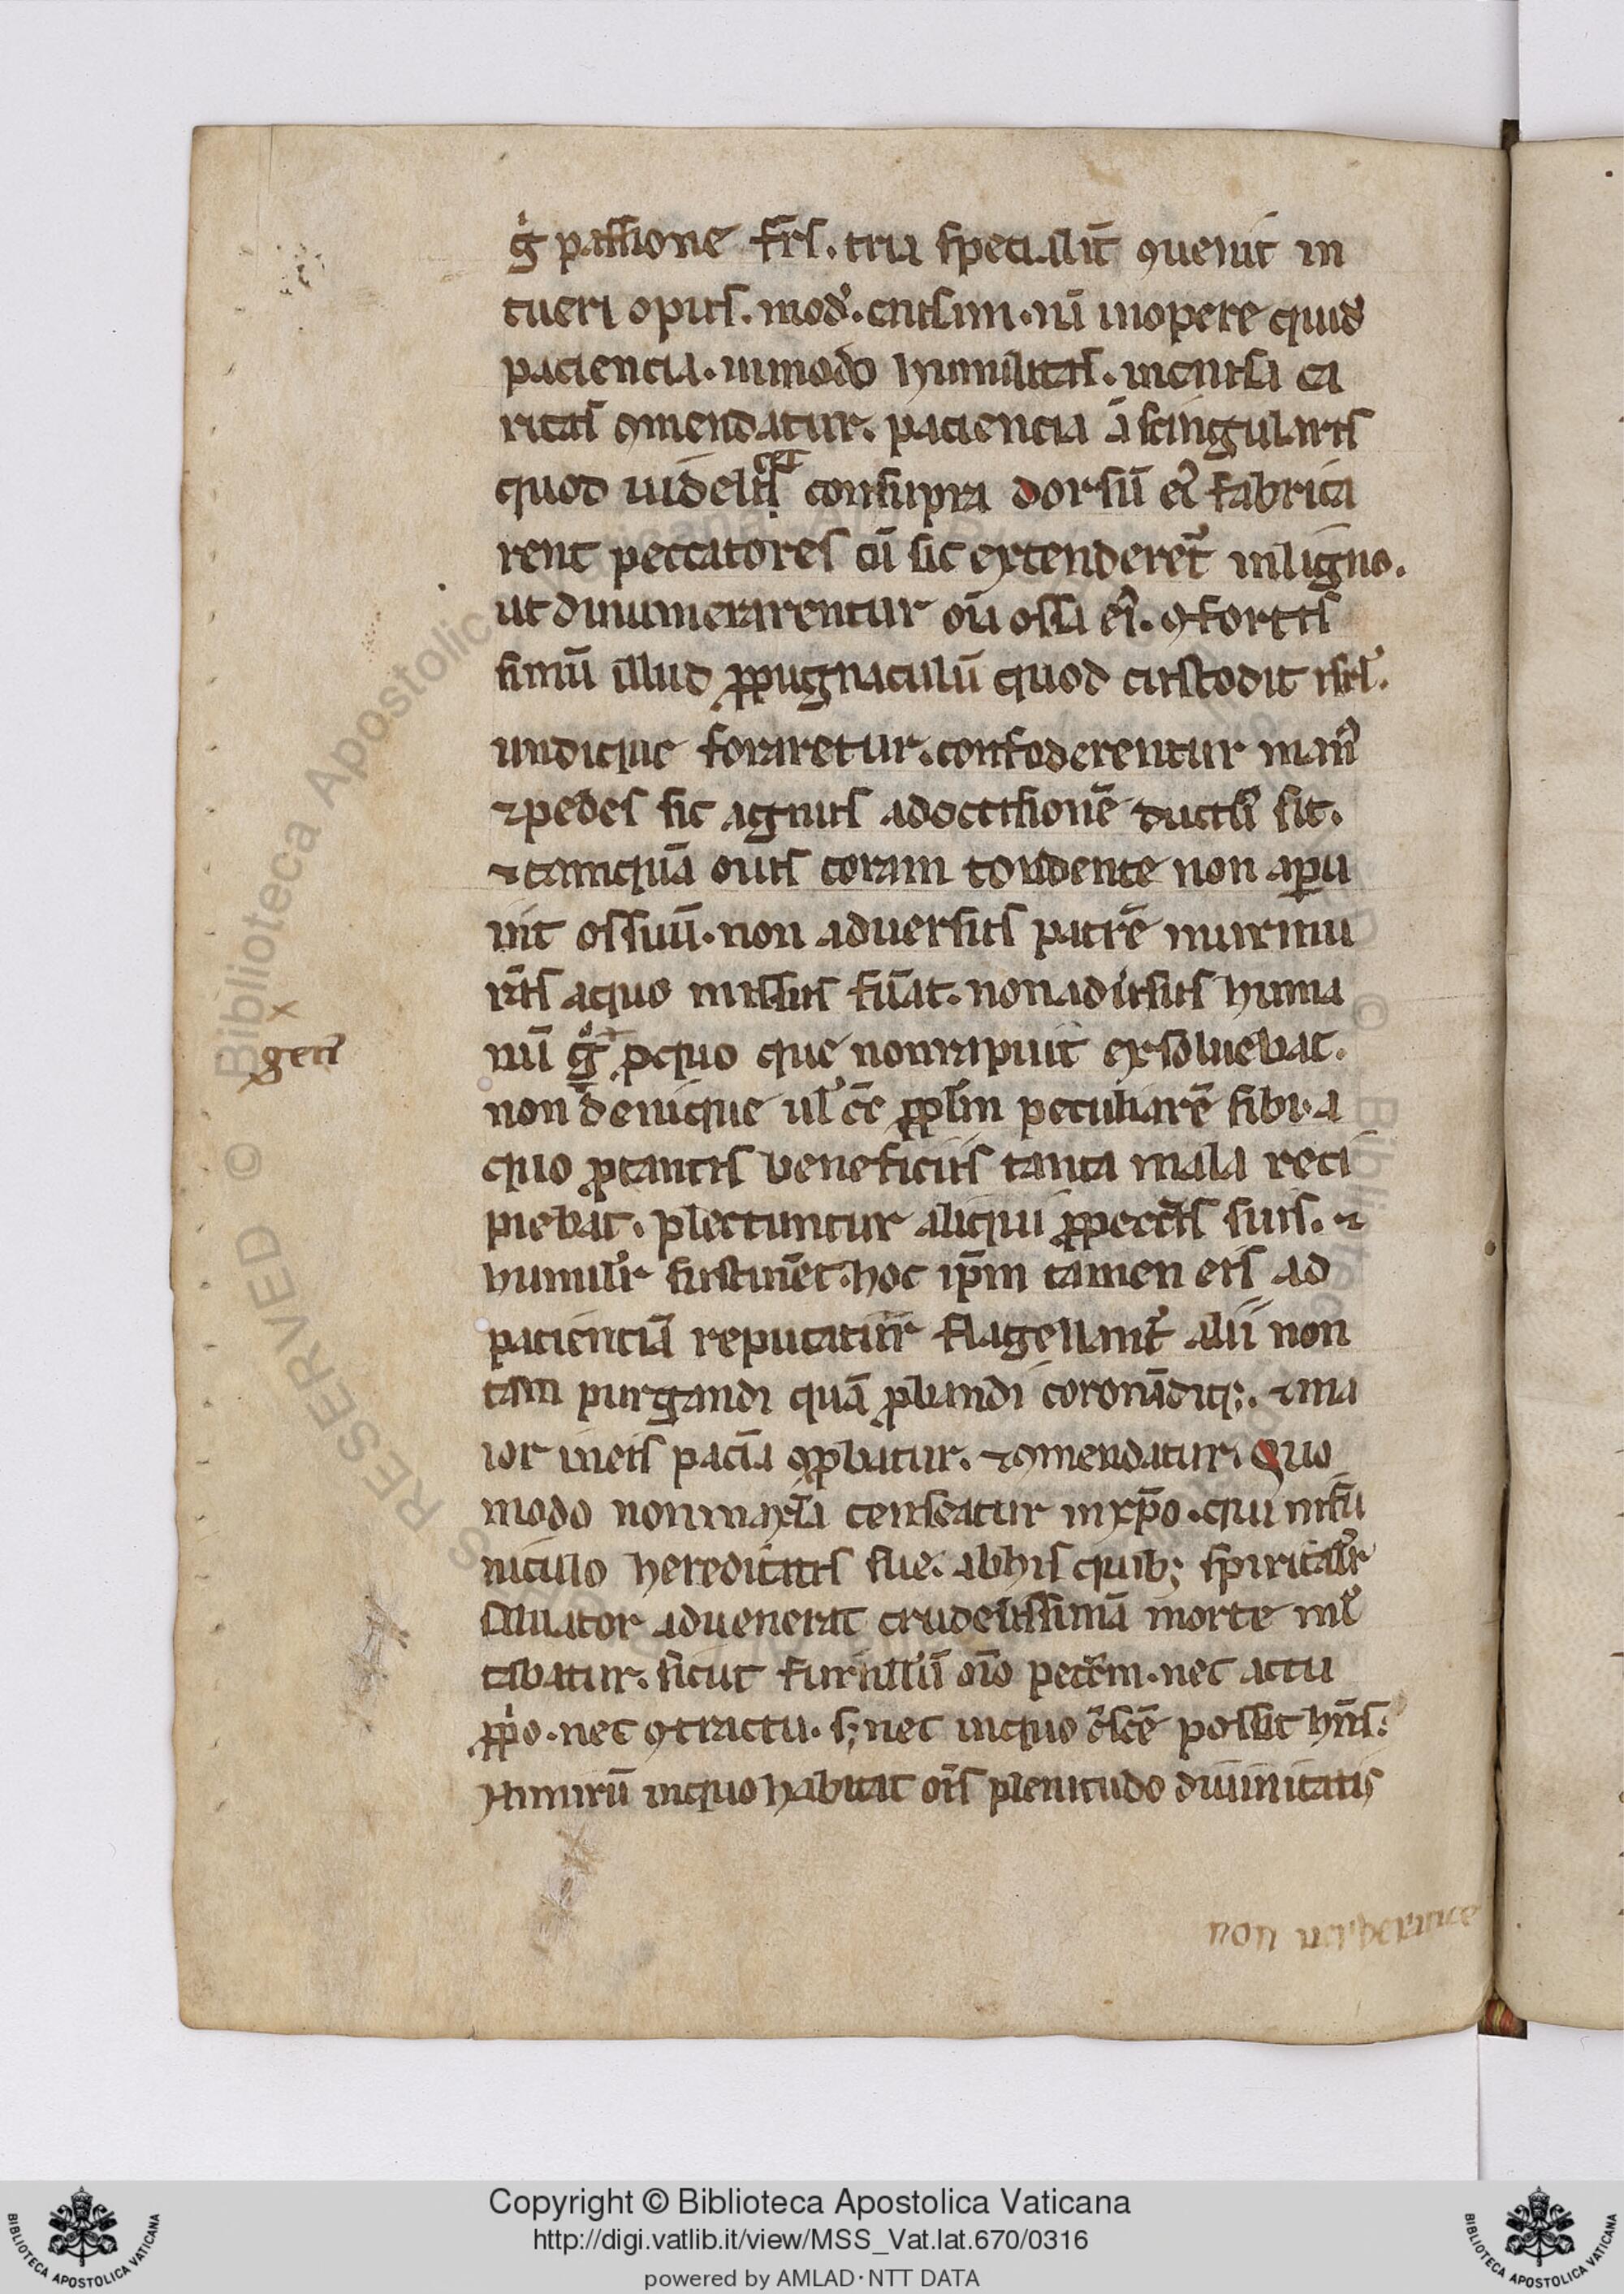 gͥ passione fr̄s. tria specialit̄ ꝯuenit in
tueri opus. modū. causam. nā inopere quidē
paciencia. inmodo humilitas. incausa ca
ritas ꝯmendatur. paciencia ā singularis
quod uidelis cet consupra dorsū ei fabrica
rent peccatores cū sic extenderet᷑ inligno.
ut dinumerarentur oīa ossa ei᷒. ⁊ fortis
simū illud ꝓpugnaculū quod custodit isrl̄.
undique foraretur. confoderentur man᷒
⁊ pedes sic agnus adoccisionē duct᷒ sit.
⁊ tamquā ouis coram tondente non aperu
it os suū. non aduersus patrē murmu
rās aquo missus fūat. non aduersus huma
nū gͦ ꝓquo que nonrapuit exsoluebat.
gen᷒
non denique ul̓ cē ꝓpl̄m peculiarē sibi. a
quo ꝓtantis beneficiis tanta mala reci
piebat. plectuntur aliqui ꝓpeccatis suis. ⁊
humilit̄ sustinēt. hoc ip̄m tamen eis ad
pacienciā reputatur flagellant᷑ alii non
tam purgandi quā ꝓbandi coronādiq;. ⁊ ma
ior ineis paciā ꝯꝓbatur. ⁊ ꝯmendatur. Quo
modo nonmaxīa censeatur inxp̄o. qui infu
niculo hereditatis sue. abhis quib; spiritalit̄
saluator aduenerat crudelissimā morte ml̓
tabatur. sicut fur nullū oīo pecc̄m. nec actu
ꝓpͥo. nec ꝯtractu. s; nec inquo c̓scē possit hn̄s.
Nimirū inquo habitat oīs plenitudo diuinitatis
non uerberante
Copyright © Biblioteca Apostolica Vaticana
http://digi.vatlib.it/view/MSS_Vat.lat.670/0316
powered by AMLAD·NTT DATA
BIBLIOTECA APOSTOLICA VATICANA
BIBLIOTECA APOSTOLICA VATICANA